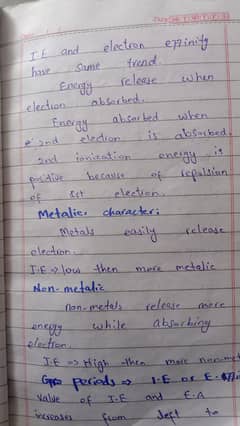 I.E and electron effinity
have same trend.
Energy release when
election absorbed.
Energy absorbed when
2nd election is absorbed.
2nd ionization energy is
positive because of repulsion
of 1st electron.
Metalic character:
Metals easily release
electron.
I.E => low then more metalic
Non-metalic
non-metals release more
energy while absorbing
electron.
I.E => High then more non-met
periods => I.E or E.
value of I.E and E.A
increases from left to